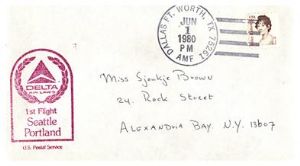 DALLAS FT. WORTH, TX 75261
JUN
1
1980
PM
AMF
DELTA
AIR LINES
1st Flight
Seattle
Portland
U.S. Postal Service
Miss Sjoukje Brown
24 Rock Street
Alexandria Bay, N.Y. 13607